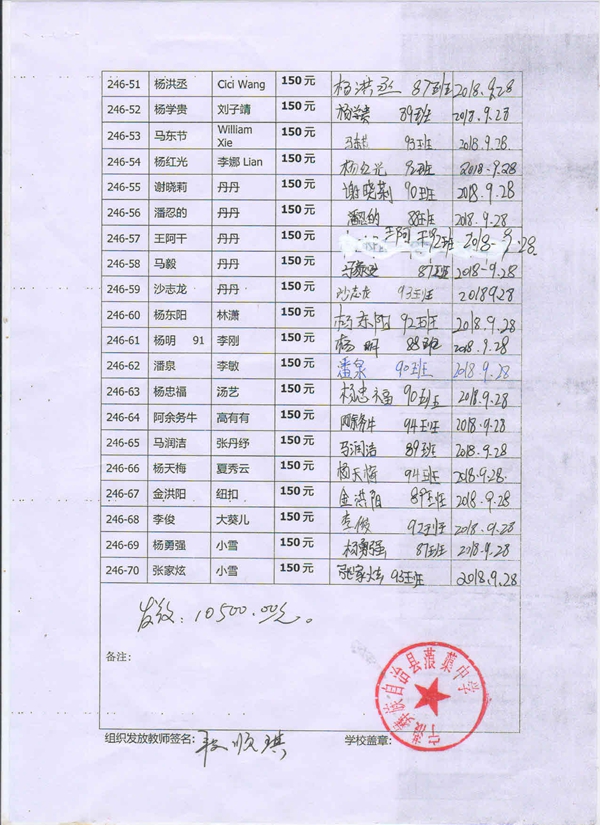 246-51 杨洪丞 Cici Wang 150元 杨洪丞 87班 2018.9.28
246-52 杨学贵 刘子靖 150元 杨学贵 89班 2018.9.28
246-53 马东节 William Xie 150元 马东节 93班 2018.9.28
246-54 杨红光 李娜 Lian 150元 杨红光 92班 2018.9.28
246-55 谢晓莉 丹丹 150元 谢晓莉 90班 2018.9.28
246-56 潘忍的 丹丹 150元 潘忍的 88班 2018.9.28
246-57 王阿干 丹丹 150元 王阿干 92班 2018-9.28
246-58 马毅 丹丹 150元 87班 2018-9.28
246-59 沙志龙 丹丹 150元 沙志龙 93班 20189.28
246-60 杨东阳 林潇 150元 杨东阳 92班 2018.9.28
246-61 杨明 91 李刚 150元 杨明 88班 2018.9.28
246-62 潘泉 李敏 150元 潘泉 90班 2018.9.28
246-63 杨忠福 汤艺 150元 杨忠福 90班 2018.9.28
246-64 阿余务牛 高有有 150元 阿余务牛 94班 2018.9.28
246-65 马润洁 张丹纾 150元 马润洁 89班 2018.9.28
246-66 杨天梅 夏秀云 150元 杨天梅 94班 2018.9.28.
246-67 金洪阳 纽扣 150元 金洪阳 89班 2018.9.28
246-68 李俊 大葵儿 150元 李俊 92班 2018.9.28
246-69 杨勇强 小雪 150元 杨勇强 87班 2018.9.28
246-70 张家炫 小雪 150元 张家炫 93班 2018.9.28
发放：10500.00元。
备注：
宁蒗彝族自治县蒗蕖中学
组织发放教师签名： 顺琪 学校盖章：